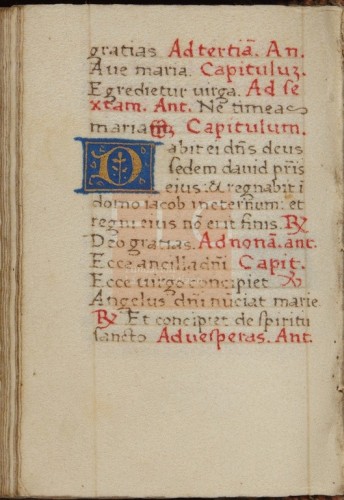 gratias. Ad tertiā. An.
Aue maria. Capituluz.
Egredietur uirga. Ad se
xtam. Ant. Ne timeas
maria. Capitulum.
Dabit ei dñs deus
sedem dauid pr̄is
eius: & regnabit i
domo iacob ineternum: et
regni eius nō erit finis. ℟
Deo gratias. Ad nonā. ant.
Ecce ancilla dñi. Capit.
Ecce uirgo concipiet. ℣
Angelus dñi nūciat marie.
℟ Et concipiet de spiritu
sancto. Ad uesperas. Ant.